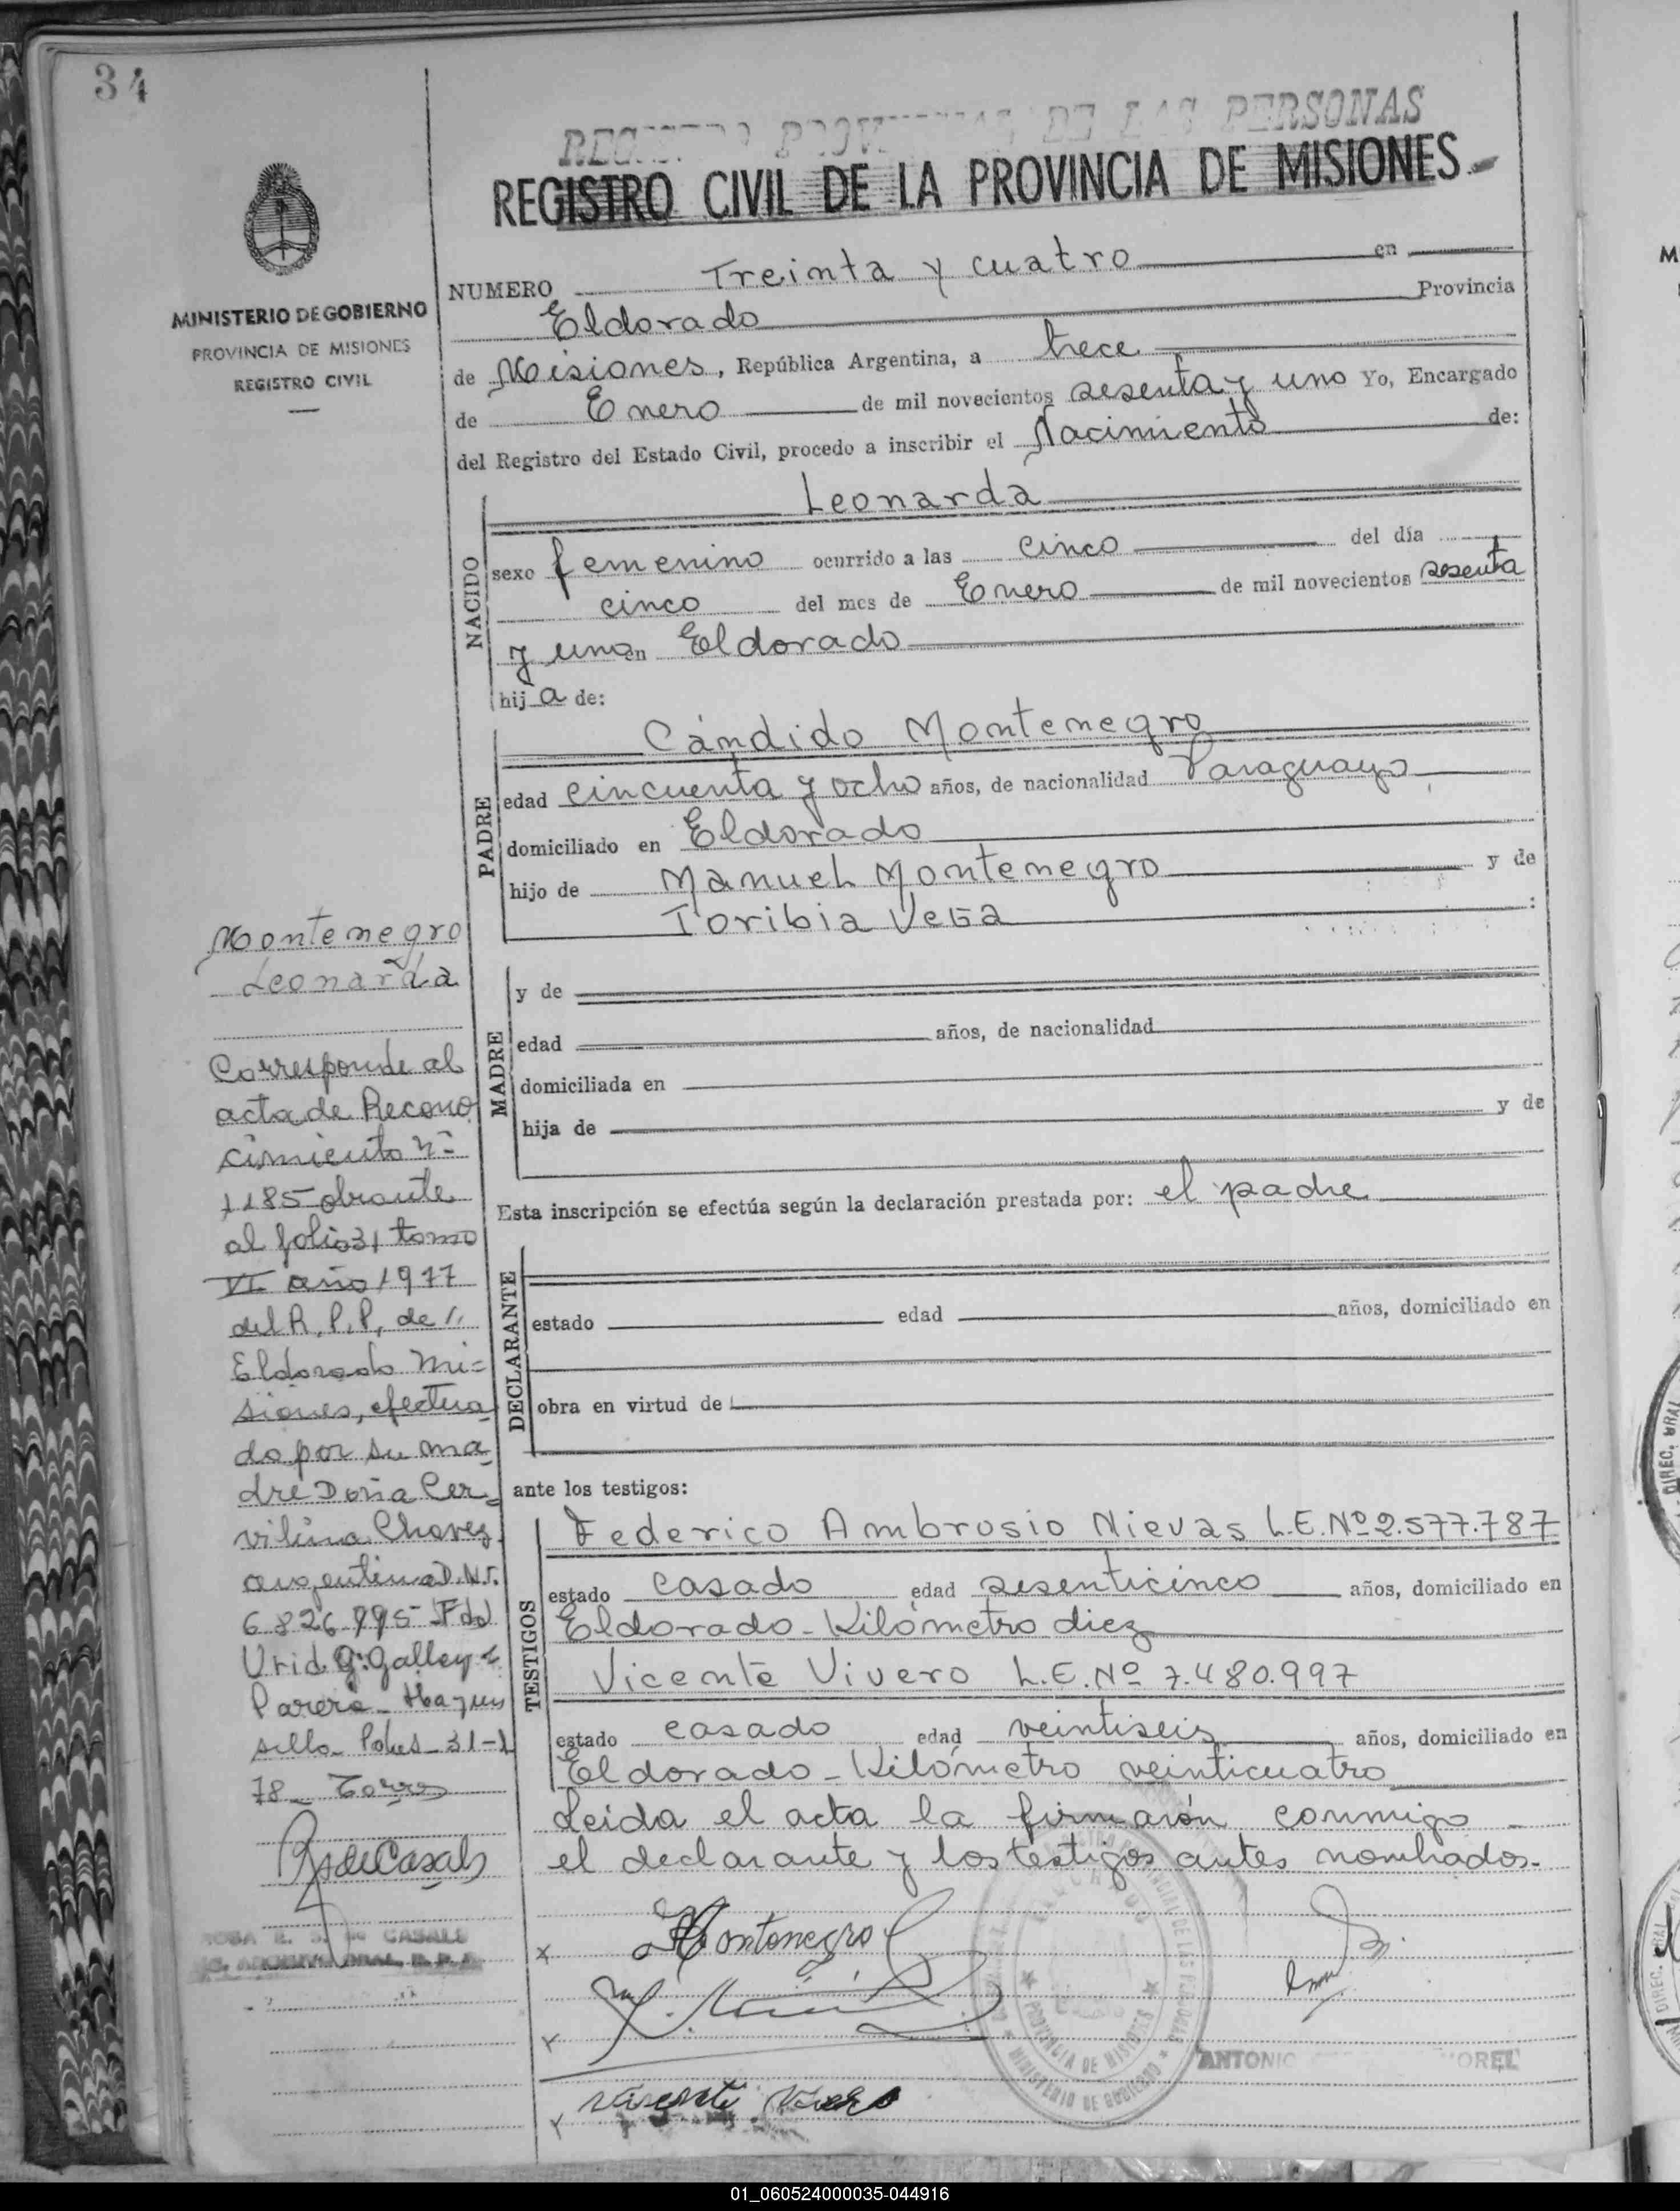 34
REGISTRO PROVINCIAL DE LAS PERSONAS
REGISTRO CIVIL DE LA PROVINCIA DE MISIONES
MINISTERIO DE GOBIERNO
PROVINCIA DE MISIONES
REGISTRO CIVIL
NUMERO Treinta y cuatro en
Eldorado Provincia
de Misiones, República Argentina, a trece
de Enero de mil novecientos sesenta y uno Yo, Encargado
del Registro del Estado Civil, procedo a inscribir el Nacimiento de:
NACIDO
Leonarda
sexo femenino ocurrido a las cinco del día
cinco del mes de Enero de mil novecientos sesenta
y uno en Eldorado
hija de:
PADRE
Cándido Montenegro
edad cincuenta y ocho años, de nacionalidad Paraguayo
domiciliado en Eldorado
hijo de Manuel Montenegro y de
Toribia Vega
MADRE
y de
edad años, de nacionalidad
domiciliada en
hija de y de
Esta inscripción se efectúa según la declaración prestada por: el padre
DECLARANTE
estado edad años, domiciliado en
obra en virtud de
ante los testigos:
TESTIGOS
Federico Ambrosio Nievas L.E.Nº 2.577.787
estado casado edad sesenticinco años, domiciliado en
Eldorado - Kilómetro diez
Vicente Vivero L.E.Nº 7.480.997
estado casado edad veintiseis años, domiciliado en
Eldorado - Kilómetro veinticuatro
Leida el acta la firmarón conmigo
el declarante y los testigos antes nombrados.
Montenegro
Vicente Vivero
ANTONIO OREL
PROVINCIA DE MISIONES
MINISTERIO DE GOBIERNO
Montenegro
Leonarda
Corresponde al
acta de Recono
cimiento nº
1185 obrante
al folio 31 tomo
VI año 1977
del R.P.P. de
Eldorado Mi=
siones, efectua
do por su ma
dre Doña Cer=
vilina Chavez
argentina D.N.I.
6826995 Fdo
Urid G. Galley
Parera - Hay un
sello Pdas 31-1
78 - Torres
RsdeCasals
ROSA E. S. de CASALS
GRAL. R.P.P.
DIREC. GRAL.
01_060524000035-044916